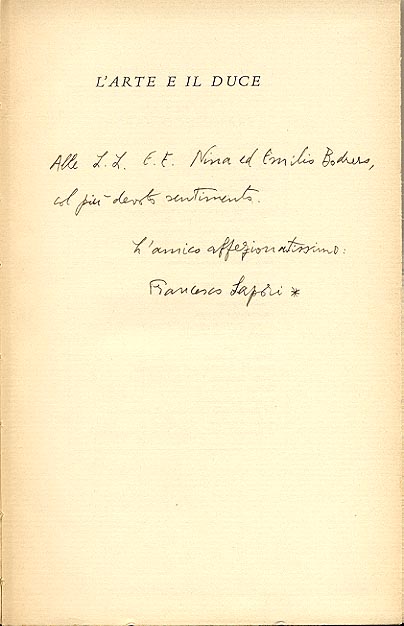 L'ARTE E IL DUCE
Alle L.L. E.E. Nina ed Emilio Bodrero,
col più devoto sentimento.
L'amico affezionatissimo:
Francesco Sapori *